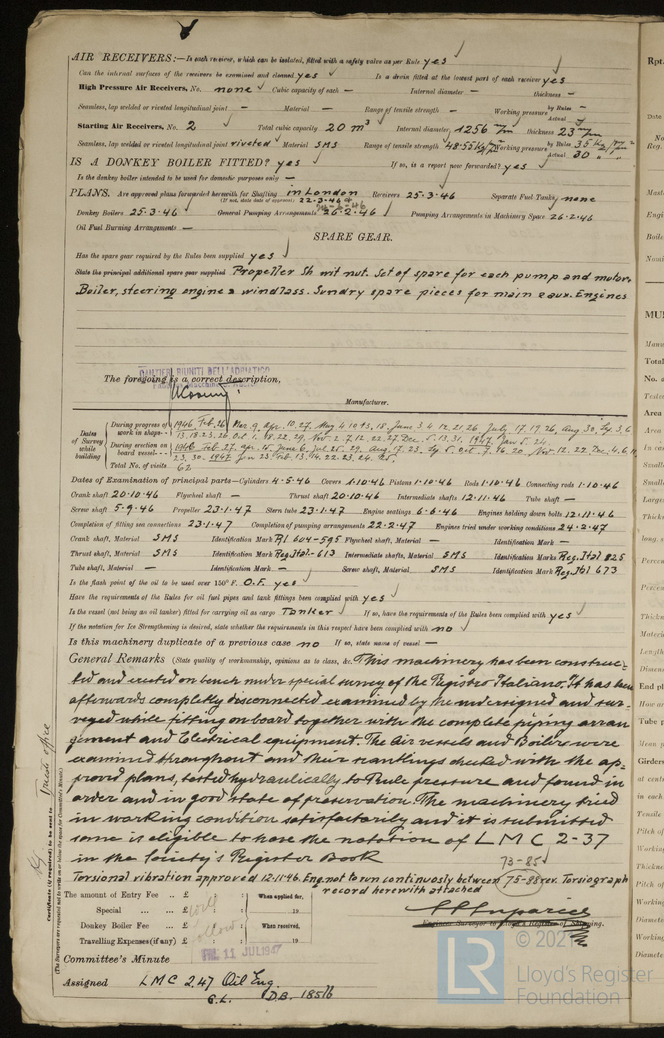 AIR RECEIVERS:—Is each receiver, which can be isolated, fitted with a safety valve as per Rule yes
Can the internal surfaces of the receivers be examined and cleaned yes Is a drain fitted at the lowest part of each receiver yes
High Pressure Air Receivers, No. none Cubic capacity of each — Internal diameter — thickness —
Seamless, lap welded or riveted longitudinal joint — Material — Range of tensile strength — Working pressure by Rules — Actual
Starting Air Receivers, No. 2 Total cubic capacity 20 m³ Internal diameter 1256 m/m thickness 23 m/m
Seamless, lap welded or riveted longitudinal joint riveted Material SMS Range of tensile strength Working pressure by Rules Actual 30
IS A DONKEY BOILER FITTED? yes If so, is a report now forwarded? yes
Is the donkey boiler intended to be used for domestic purposes only —
PLANS. Are approved plans forwarded herewith for Shafting in London Receivers 25.3.46 Separate Fuel Tanks none
(If not, state date of approval) 22.3.46
Donkey Boilers 25.3.46 General Pumping Arrangements 26.2.46 Pumping Arrangements in Machinery Space 26.2.46
Oil Fuel Burning Arrangements —
SPARE GEAR.
Has the spare gear required by the Rules been supplied yes
State the principal additional spare gear supplied Propeller Sh wit nut. Set of spare for each pump and motor.
Boiler, steering engine & windlass. Sundry spare pieces for main & aux. Engines
CANTIERI RIUNITI DELL'ADRIATICO
The foregoing is a correct description,
Manufacturer.
Dates of Survey while building
During progress of work in shops--
During erection on board vessel---
Total No. of visits 62
Dates of Examination of principal parts—Cylinders 4.5.46 Covers 1.10.46 Pistons 1.10.46 Rods 1.10.46 Connecting rods 1.10.46
Crank shaft 20.10.46 Flywheel shaft — Thrust shaft 20.10.46 Intermediate shafts 12.11.46 Tube shaft —
Screw shaft 5.9.46 Propeller 23.1.47 Stern tube 23.1.47 Engine seatings 6.6.46 Engines holding down bolts 12.11.46
Completion of fitting sea connections 23.1.47 Completion of pumping arrangements 22.2.47 Engines tried under working conditions 24.2.47
Crank shaft, Material SMS Identification Mark RI 604-595 Flywheel shaft, Material — Identification Mark —
Thrust shaft, Material SMS Identification Mark Reg.Ital.613 Intermediate shafts, Material SMS Identification Marks Reg.Ital 825
Tube shaft, Material — Identification Mark — Screw shaft, Material SMS Identification Mark Reg.Itl 673
Is the flash point of the oil to be used over 150° F. O.F. yes
Have the requirements of the Rules for oil fuel pipes and tank fittings been complied with yes
Is the vessel (not being an oil tanker) fitted for carrying oil as cargo Tanker If so, have the requirements of the Rules been complied with yes
If the notation for Ice Strengthening is desired, state whether the requirements in this respect have been complied with no
Is this machinery duplicate of a previous case no If so, state name of vessel —
General Remarks (State quality of workmanship, opinions as to class, &c. This machinery has been construc-
ted and erected on bench under special survey of the Registro Italiano, It has been
afterwards completly disconnected examined by the undersigned and sur-
veyed while fitting on board together with the complete piping arran
gement and Electrical equipment. The Air vessels and Boilers were
examined throughout and their scantlings checked with the ap-
proved plans, tested hydraulically to Rule pressure and found in
order and in good state of preservation. The machinery tried
in working condition satisfactorily and it is submitted
same is eligible to have the notation of LMC 2-37
in the Society's Register Book
73-85
Torsional vibration approved 12.11.46. Eng. not to run continuously between 75-88 rev. Torsiograph
record herewith attached
The amount of Entry Fee .. £ : : When applied for,
Special ... ... £ will : 19
Donkey Boiler Fee ... £ follow : When received,
Travelling Expenses (if any) £ : : 19
Engineer Surveyor to Lloyd's Register of Shipping.
Committee's Minute FRI. 11 JUL 1947
Assigned LMC 2.47 Oil Eng.
C.L. D.B. 185 lb
Certificate (if required) to be sent to Trieste office
(The Surveyors are requested not to write on or below the space for Committee's Minute.)
© 2021
LR
Lloyd's Register
Foundation